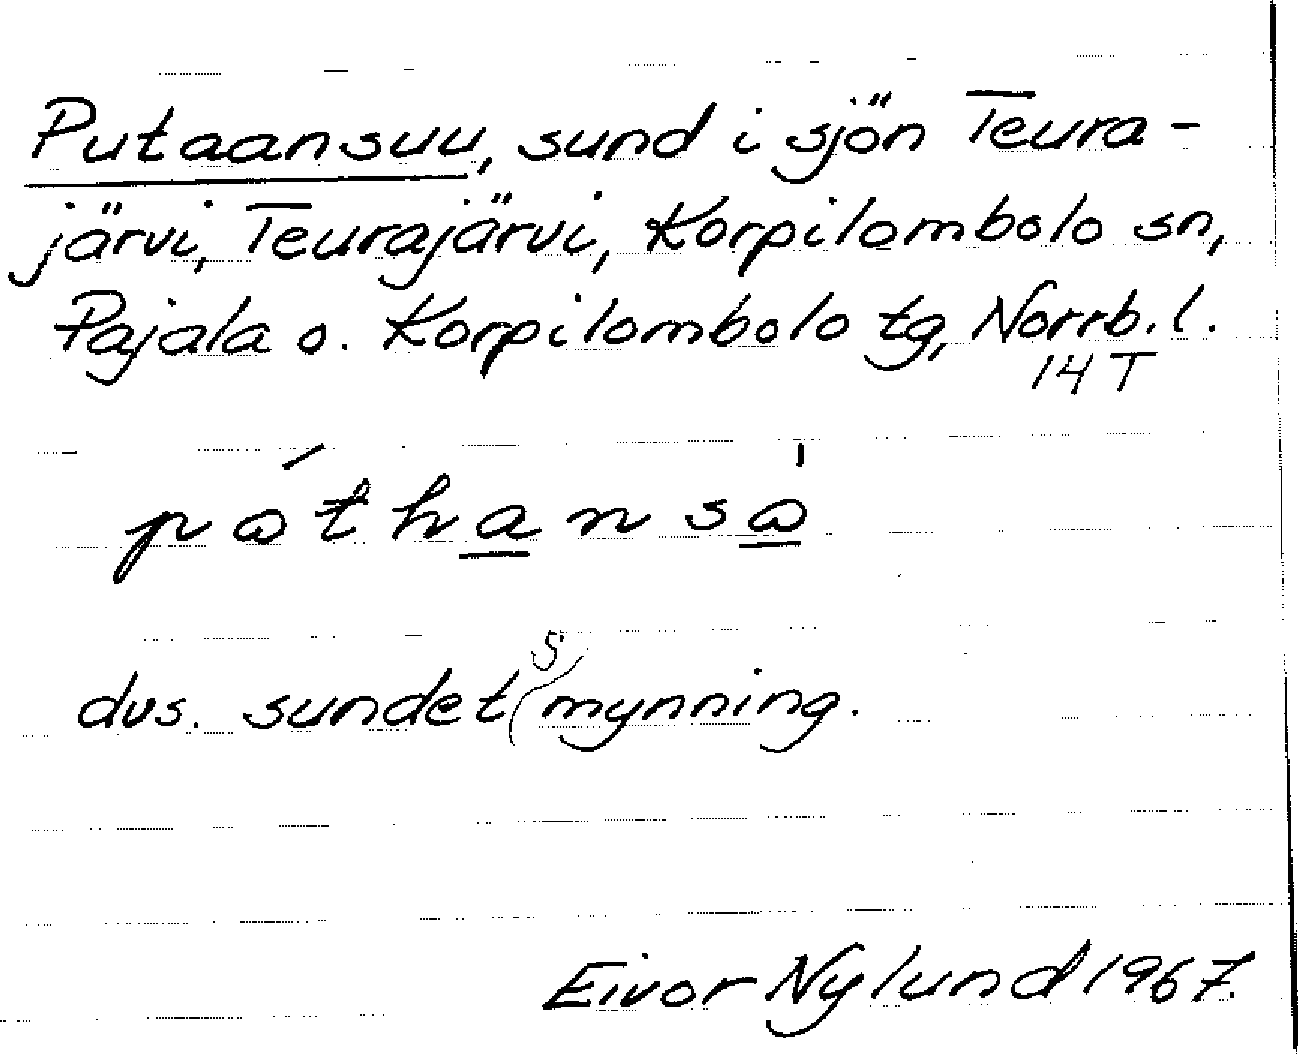 Putaansuu, sund i sjön Teura-
järvi, Teurajärvi, Korpilombolo sn,
Pajala o. Korpilombolo tg, Norrb. l.
14 T
pəthansə
dvs. sundets mynning.
Eivor Nylund 1967.